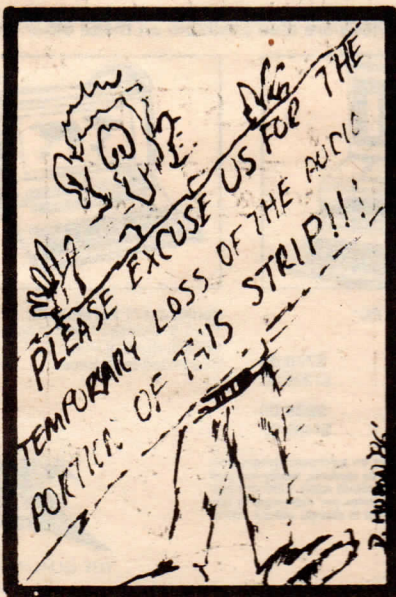 PLEASE EXCUSE US FOR THE
TEMPORARY LOSS OF THE AUDIO
PORTION OF THIS STRIP!!!
'86